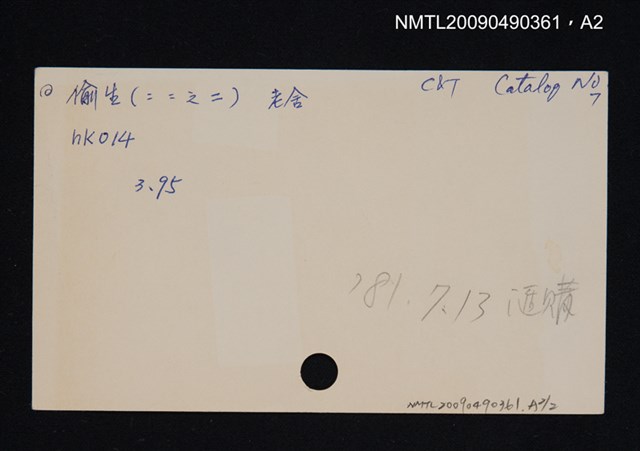 NMTL20090490361，A2
C&T Catalog No 7
偷生（二二之二） 老舍
hK014
3.95
'81.7.13 滙購
NMTL20090490361.A2/2